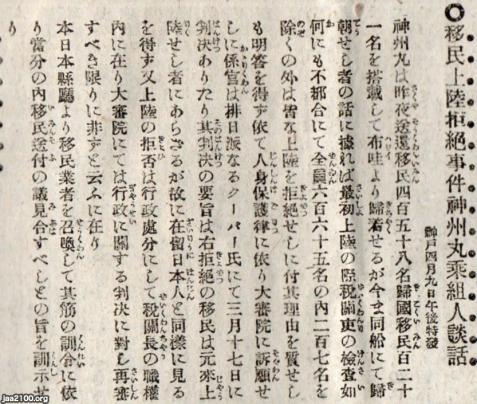 ◎移民上陸拒絶事件神州丸乗組人談話
神戸四月九日午後特發
神州丸は昨夜送還移民四百五十八名歸國移民百二十
一名を搭載して布哇より歸着せるが今ま同船にて歸
朝せし者の話に據れば最初上陸の際税關吏の檢査如
何にも不都合にて全員六百六十五名の內二百七名を
除くの外は皆な上陸を拒絶せしに付其理由を質せし
も明答を得ず依て人身保護律に依り大審院に訴願せ
しに係官は排日派なるクーパー氏にて三月十七日に
判決ありたり其判決の要旨は右拒絶の移民は元來上
陸せし者にあらざるが故に在留日本人と同樣に見る
を得ず又上陸の拒否は行政處分にして税關長の職權
內に在り大審院にては行政に關する判決に對し再審
すべき限りに非ずと云ふに在り
本日本縣廳より移民業者を召喚して其筋の訓令に依
り當分の內移民送付の議見合すべしとの旨を訓示せ
り
Jaa2100.org